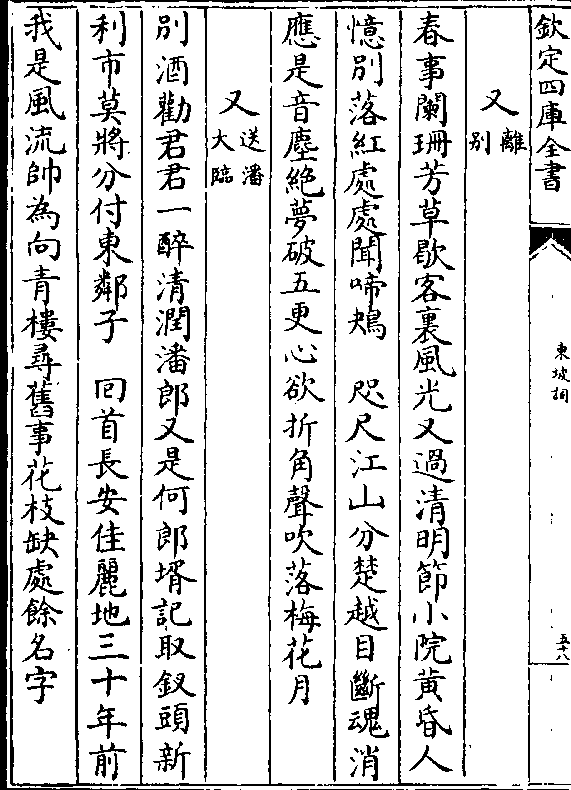 欽定四庫全書
東坡詞
五十八
又離別
春事闌珊芳草歇客裏風光又過清明節小院黃昏人
憶别落紅處處聞啼鴂　咫尺江山分楚越目斷魂消
應是音塵絶夢破五更心欲折角聲吹落梅花月
又送潘大臨
别酒勸君君一醉清潤潘郎又是何郎壻記取釵頭新
利市莫將分付東鄰子　回首長安佳麗地三十年前
我是風流帥為向青樓尋舊事花枝缺處餘名字